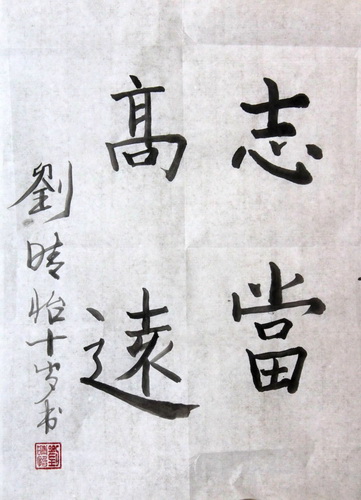 志當
髙遠
劉晴怡十岁书